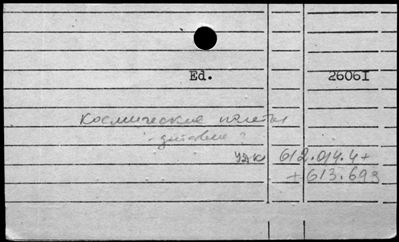 Ed. 26061
Космические полеты
- действие ?
УДК 612.014.4+
+613.693